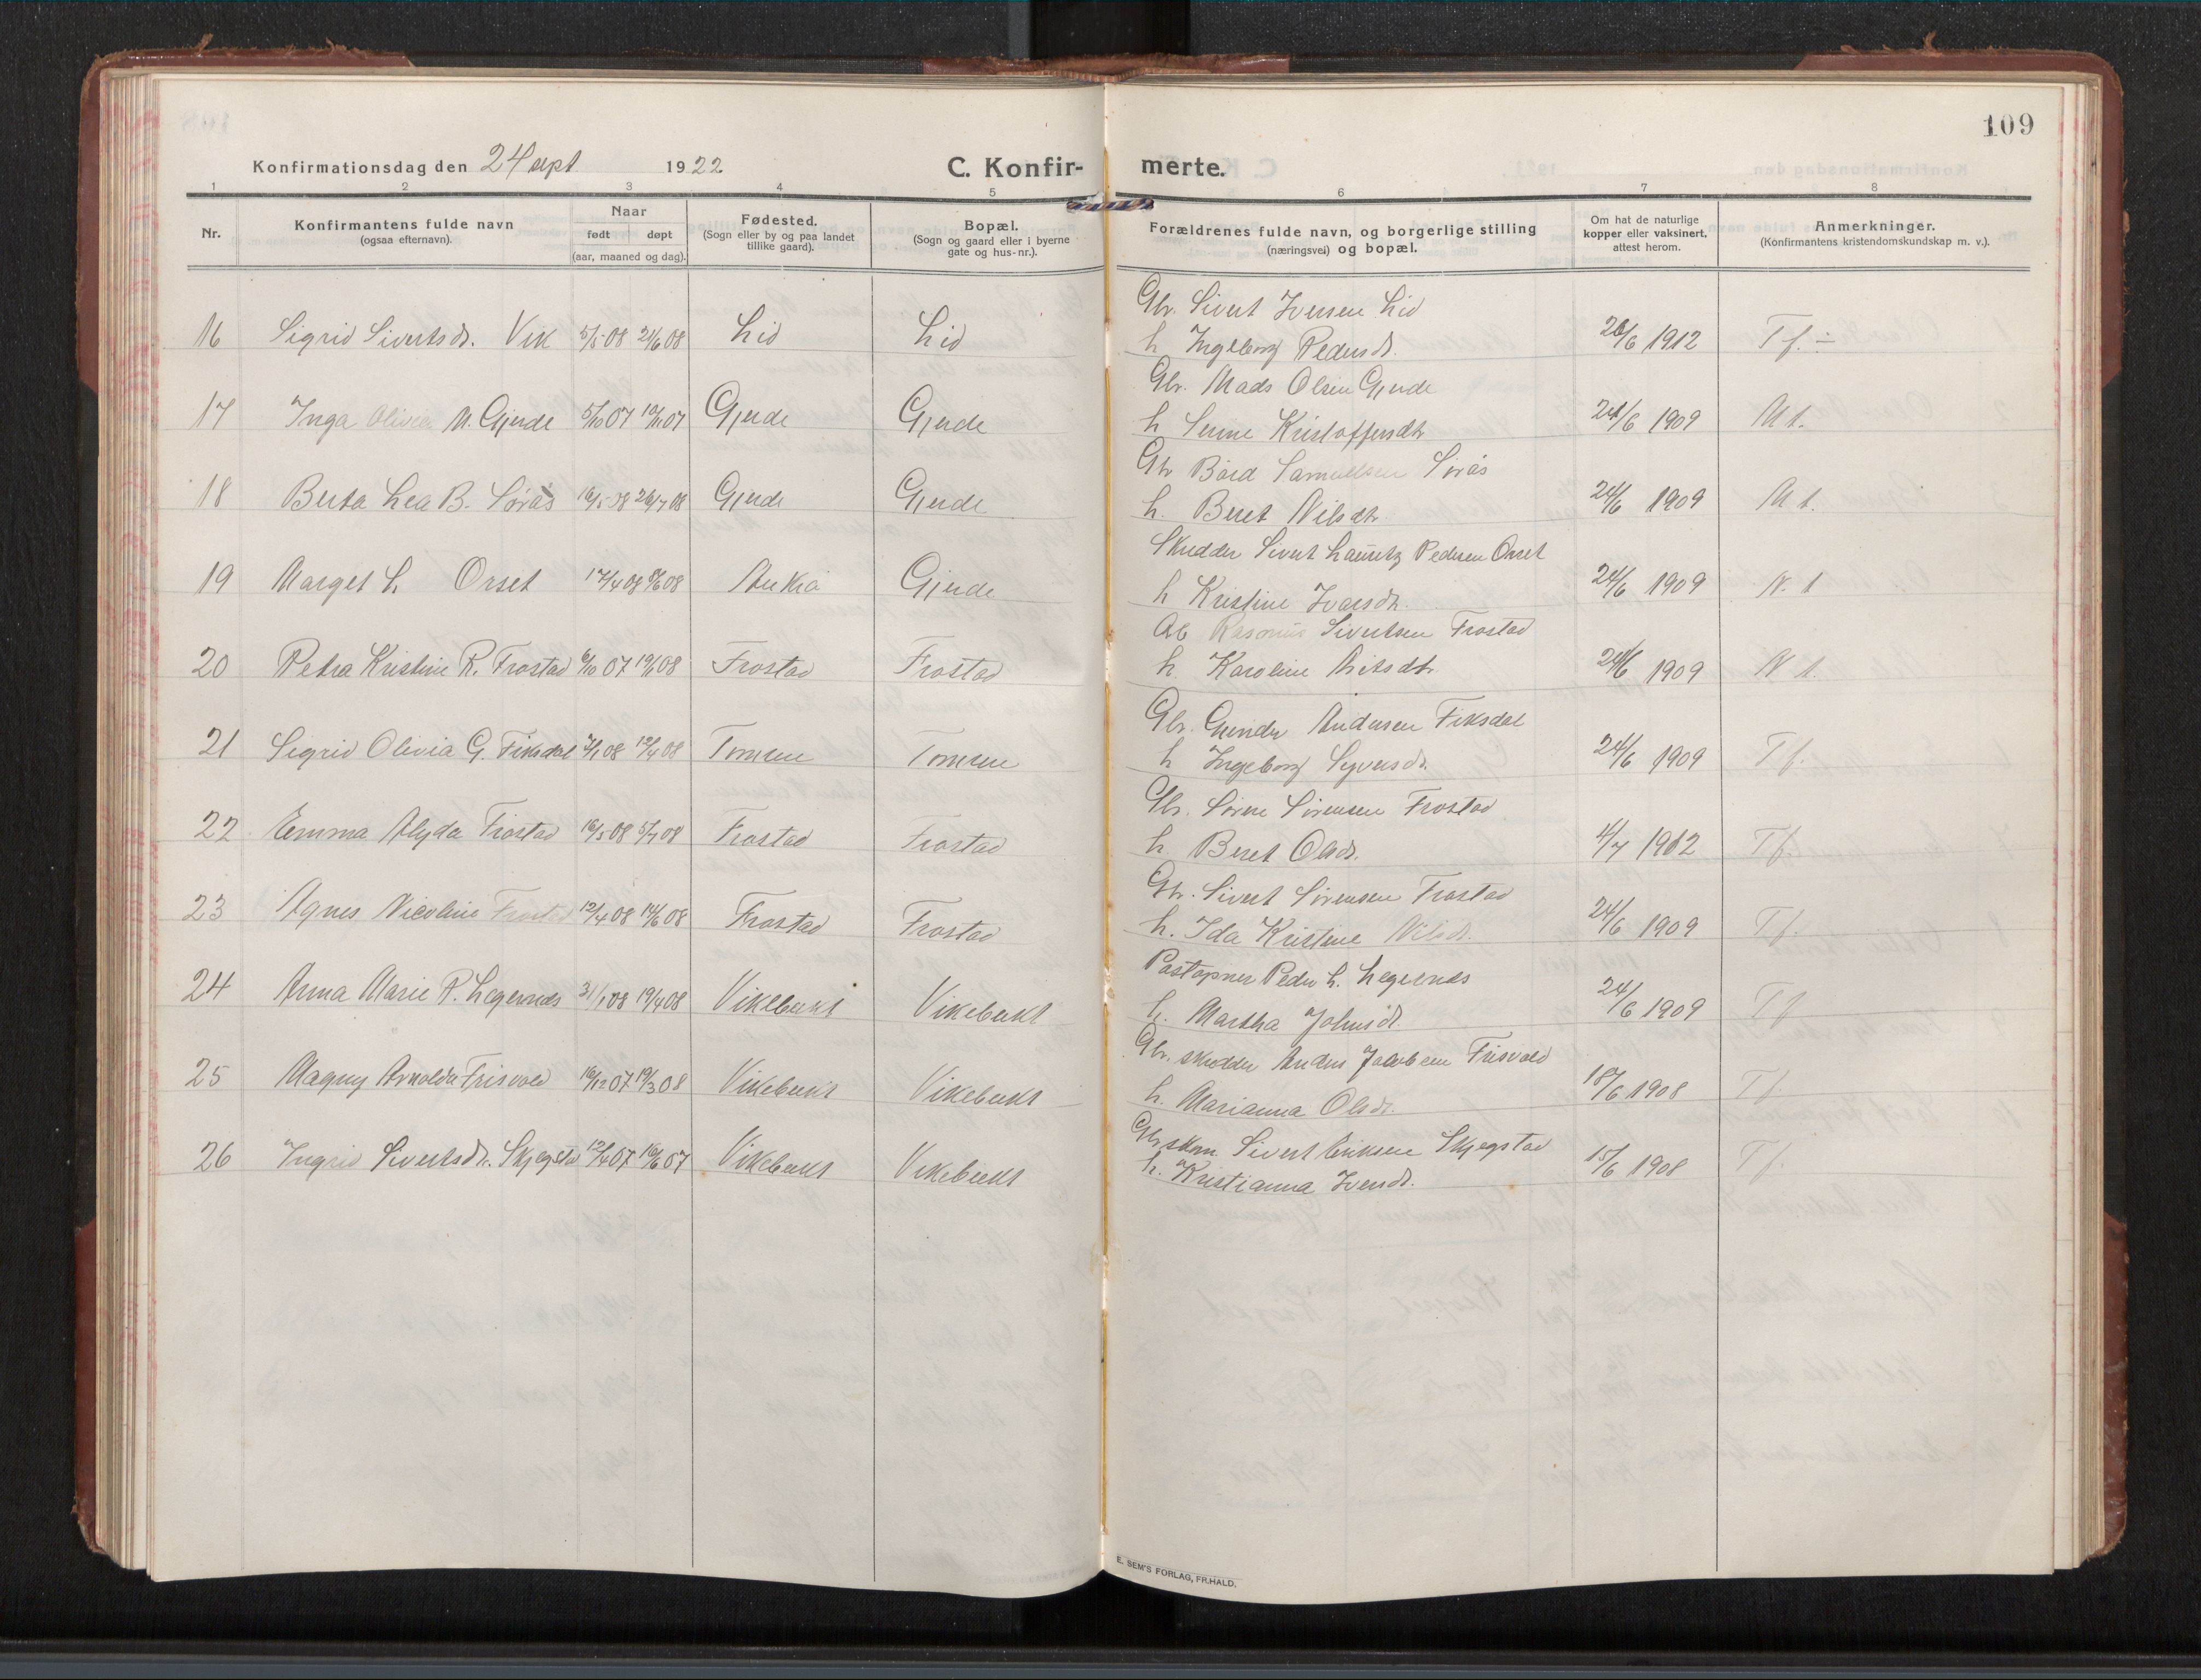 109
Konfirmationsdag den 24 sept 1922 C. Konfir- merte.
1 2 3 4 5 6 7 8
Nr.
Konfirmantens fulde navn
(ogsaa efternavn).
Naar
født døpt
(aar, maaned og dag).
Fødested.
(Sogn eller by og paa landet
tillike gaard).
Bopæl.
(Sogn og gaard eller i byerne
gate og hus-nr.).
Forældrenes fulde navn, og borgerlige stilling
(næringsvei) og bopæl.
Om hat de naturlige
kopper eller vaksinert,
attest herom.
Anmerkninger.
(Konfirmantens kristendomskundskap m. v.).
Gbr. Sivert Iversen Lid
16 Sigrid Sivertsdr. Vik 5/5 08 21/6 08 Lid Lid h Ingeborg Pedersdr. 20/6 1912 T f. ÷
Gbr. Mads Olsen Gjerde
17 Inga Olivia M. Gjerde 5/10 07 10/11 07 Gjerde Gjerde h Serine Kristoffersdtr 24/6 1909 M t.
Gbr Bård Samuelsen Sørås
18 Berta Lea B. Sørås 16/5 08 26/7 08 Gjerde Gjerde h. Beret Nilsdtr 24/6 1909 M t.
Skredder Sivert Lauritz Pedersen Orset
19 Marget L. Orset 17/4 08 8/6 08 Aukra Gjerde h Kristine Ivarsdtr. 24/6 1909 N. t
Rasmus Sivertsen Frostad
20 Petra Kristine R. Frostad 6/10 07 19/1 08 Frostad Frostad h. Karoline 24/6 1909 N t.
Gbr. Gunder Andersen Fiksdal
21 Sigrid Olivia G. Fiksdal 7/1 08 12/4 08 Tomren Tomren h Ingeborg Syversdr. 24/6 1909 T f.
Gbr. Søren Sørensen Frostad
22 Emma Alyda Frostad 16/5 08 5/7 08 Frostad Frostad h. Beret Olsdr. 4/7 1912 T f.
Gbr. Sivert Sørensen Frostad
23 Agnes Nicoline Frostad 12/4 08 14/6 08 Frostad Frostad h. Ida Kristine Nilsdr. 24/6 1909 T f.
Postapner Peder L. Legernes
24 Anna Marie P. Legernes 31/1 08 19/4 08 Vikebukt Vikebukt h. Martha Johnsdr. 24/6 1909 T f
Gbr. skredder Anders Jacobsen Frisvold
25 Magny Arnolda Frisvold 16/12 07 19/3 08 Vikebukt Vikebukt h. Marianna Olsdr. 18/6 1908 T f.
Gbr skom Sivert Eriksen Skjegstad
26 Ingrid Sivertsdr. Skjegstad 12/4 07 16/6 07 Vikebukt Vikebukt h. Kristianna Iversdr. 15/6 1908 T f.
E. SEM'S FORLAG, FR.HALD.